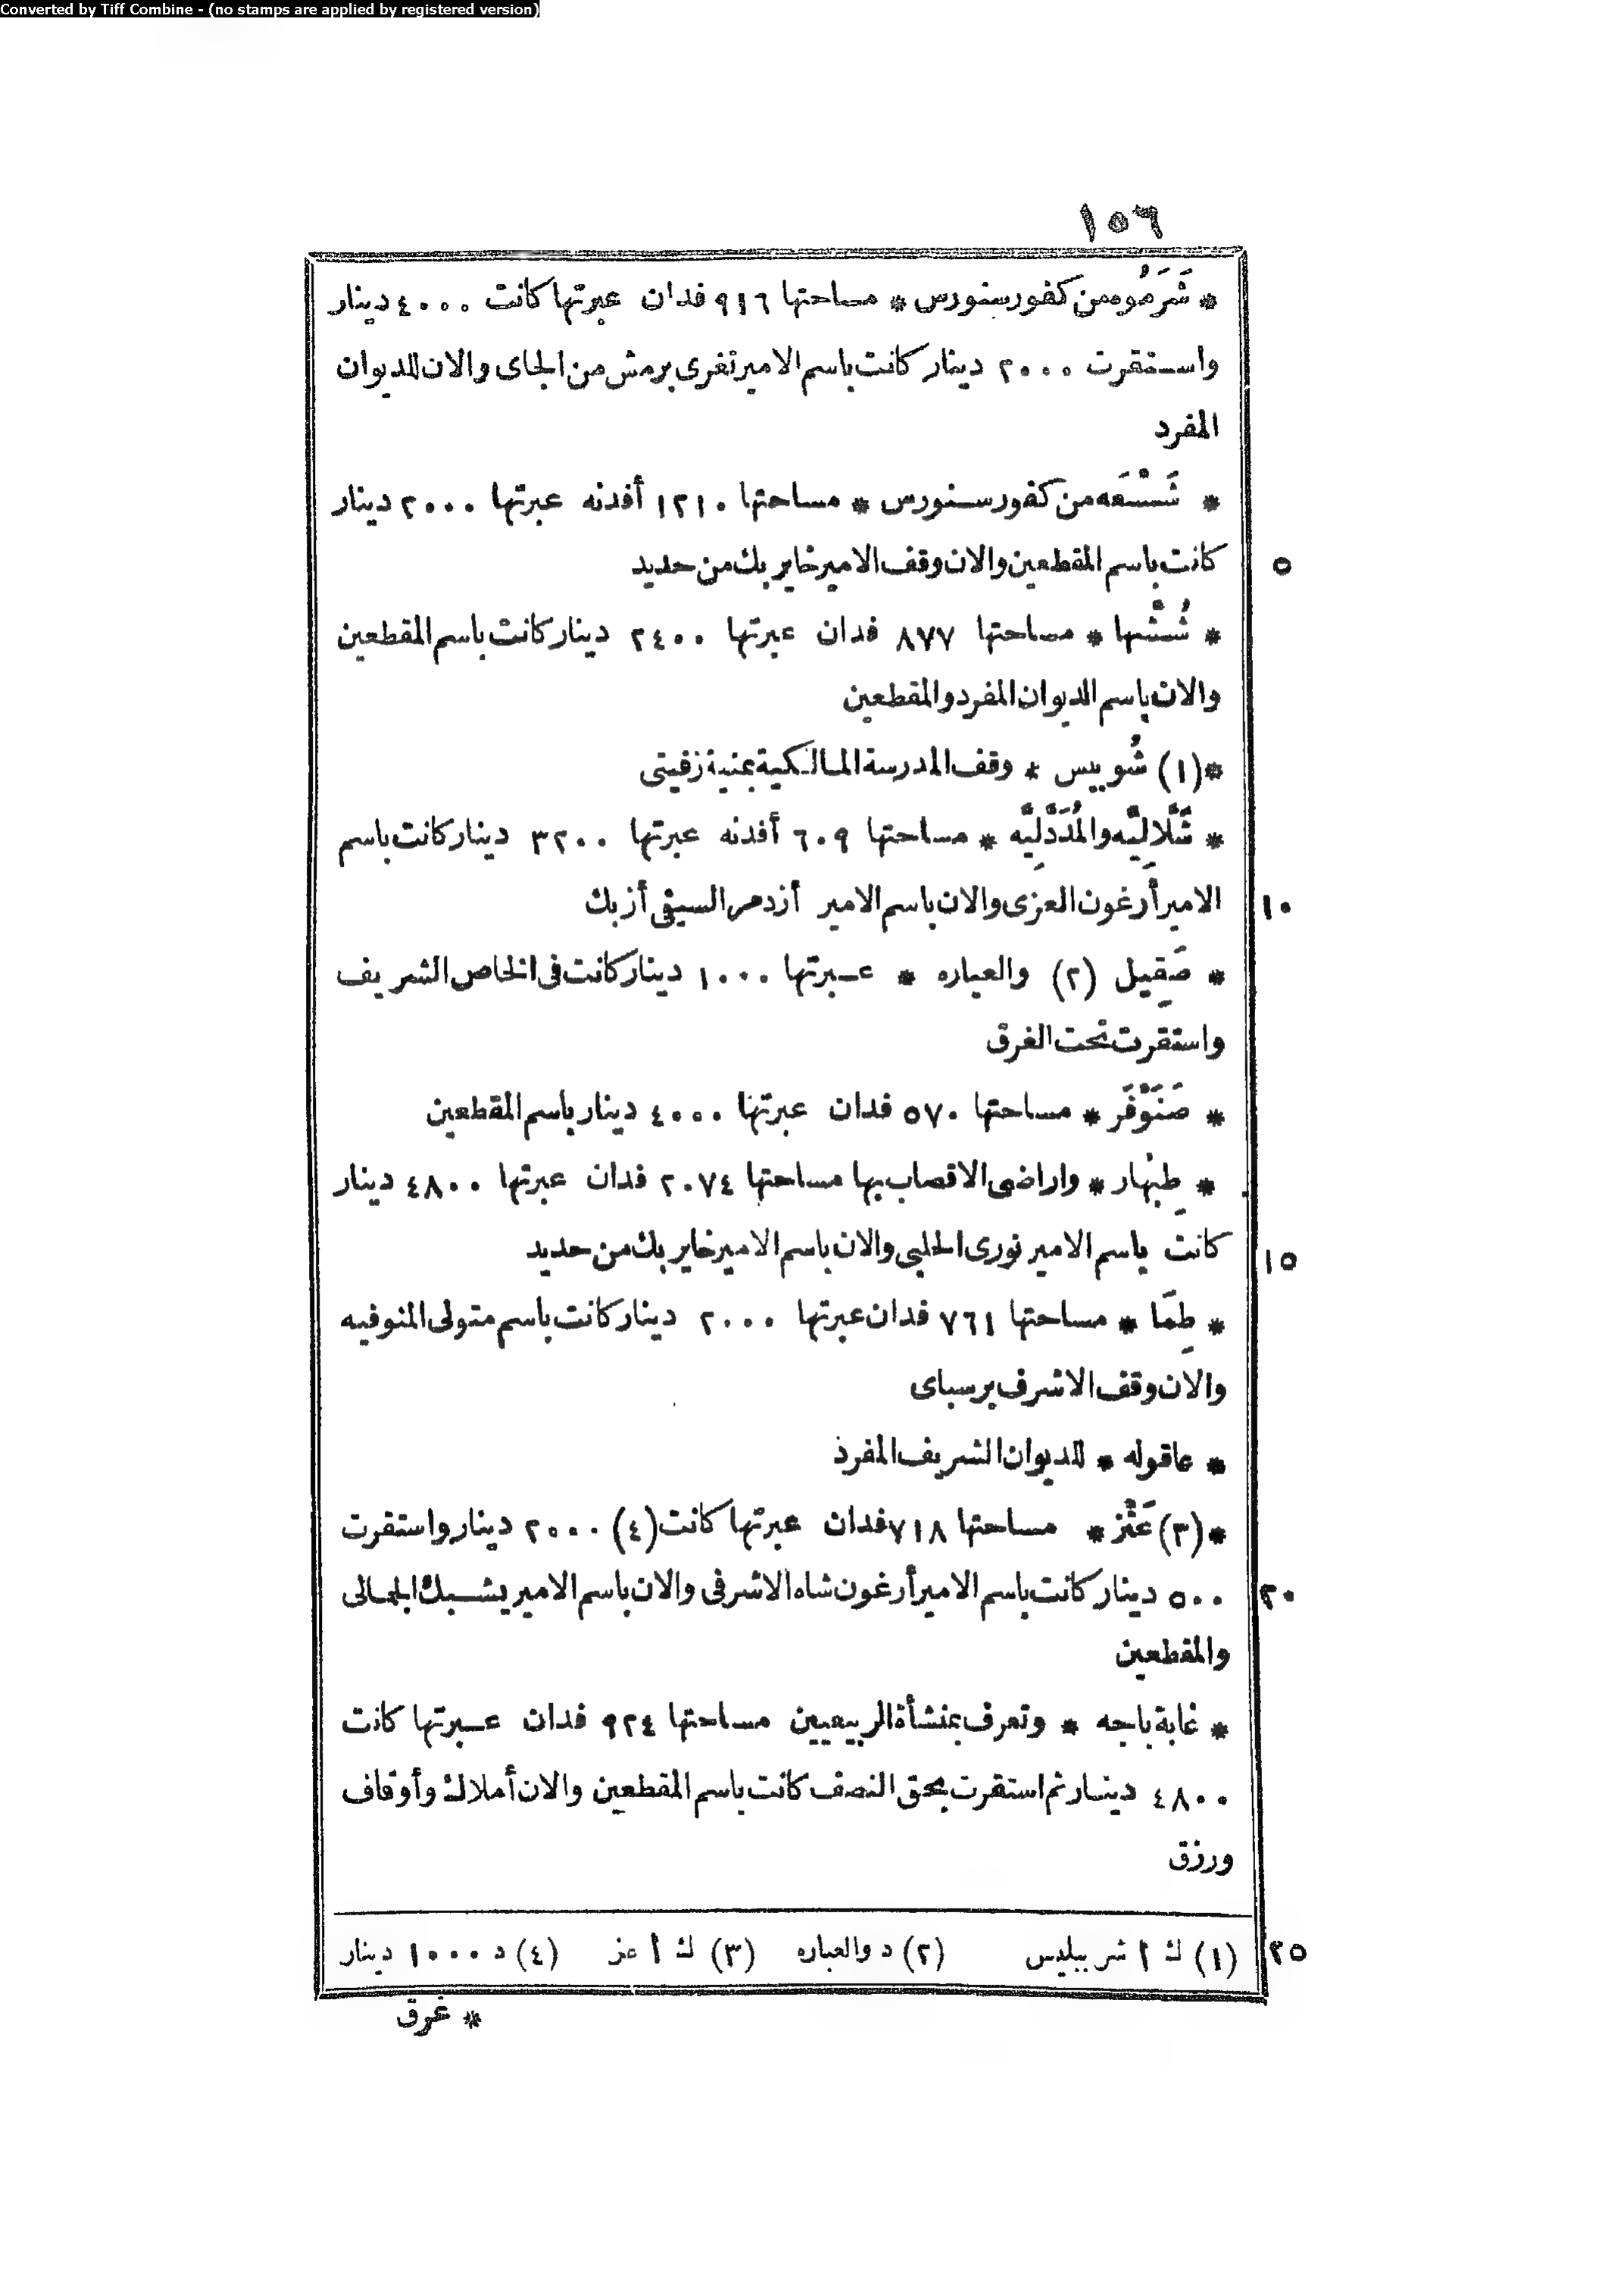 Converted by Tiff Combine - (no stamps are applied by registered version)
١٥٦
* شَرَمُوه من كفور سنورس * مساحتها ٩١٦ فدان عبرتها كانت ٤٠٠٠ دينار
واستقرت ٢٠٠٠ دينار كانت باسم الامير تغرى برمش من الجاى والان للديوان
المفرد
* شَسْعَه من كفور سنورس * مساحتها ١٢١٠ أفدنه عبرتها ٢٠٠٠ دينار
كانت باسم المقطعين والان وقف الامير خاير بك من حديد
٥
* شُشْها * مساحتها ٨٧٧ فدان عبرتها ٢٤٠٠ دينار كانت باسم المقطعين
والان باسم الديوان المفرد والمقطعين
*(١) شُوبيس * وقف المدرسة المالكية بمنية زفيتى
* شَلَّالِيَّه والمُدَدْلِيَّه * مساحتها ٦٠٩ أفدنه عبرتها ٣٢٠٠ دينار كانت باسم
الامير أرغون العزى والان باسم الامير أزدمر السيفى أزبك
١٠
* صَقِيل (٢) والعباره * عبرتها ١٠٠٠ دينار كانت فى الخاص الشريف
واستقرت تحت الغرق
* صَنَوْفَر * مساحتها ٥٧٠ فدان عبرتها ٤٠٠٠ دينار باسم المقطعين
* طِبْهار * واراضى الاقصاب بها مساحتها ٢٠٧٤ فدان عبرتها ٤٨٠٠ دينار
كانت باسم الامير نورى الحلبى والان باسم الامير خاير بك من حديد
١٥
* طِمَا * مساحتها ٧٦١ فدان عبرتها ٢٠٠٠ دينار كانت باسم متولى المنوفيه
والان وقف الاشرف برسباى
* عاقوله * للديوان الشريف المفرد
*(٣) عَنْز * مساحتها ٧١٨ فدان عبرتها كانت (٤) ٢٠٠٠ دينار واستقرت
٥٠٠ دينار كانت باسم الامير أرغون شاه الاشرفى والان باسم الامير يشبك الجمالى
٢٠
والمقطعين
* غابة باجه * وتعرف بمنشأة الربيعيين مساحتها ٩٢٤ فدان عبرتها كانت
٤٨٠٠ دينار ثم استقرت بحق النصف كانت باسم المقطعين والان أملاك وأوقاف
ورزق
(١) ك أ شر ببليس (٢) د والعباره (٣) ك أ عز (٤) د ١٠٠٠ دينار
٢٥
* غرق